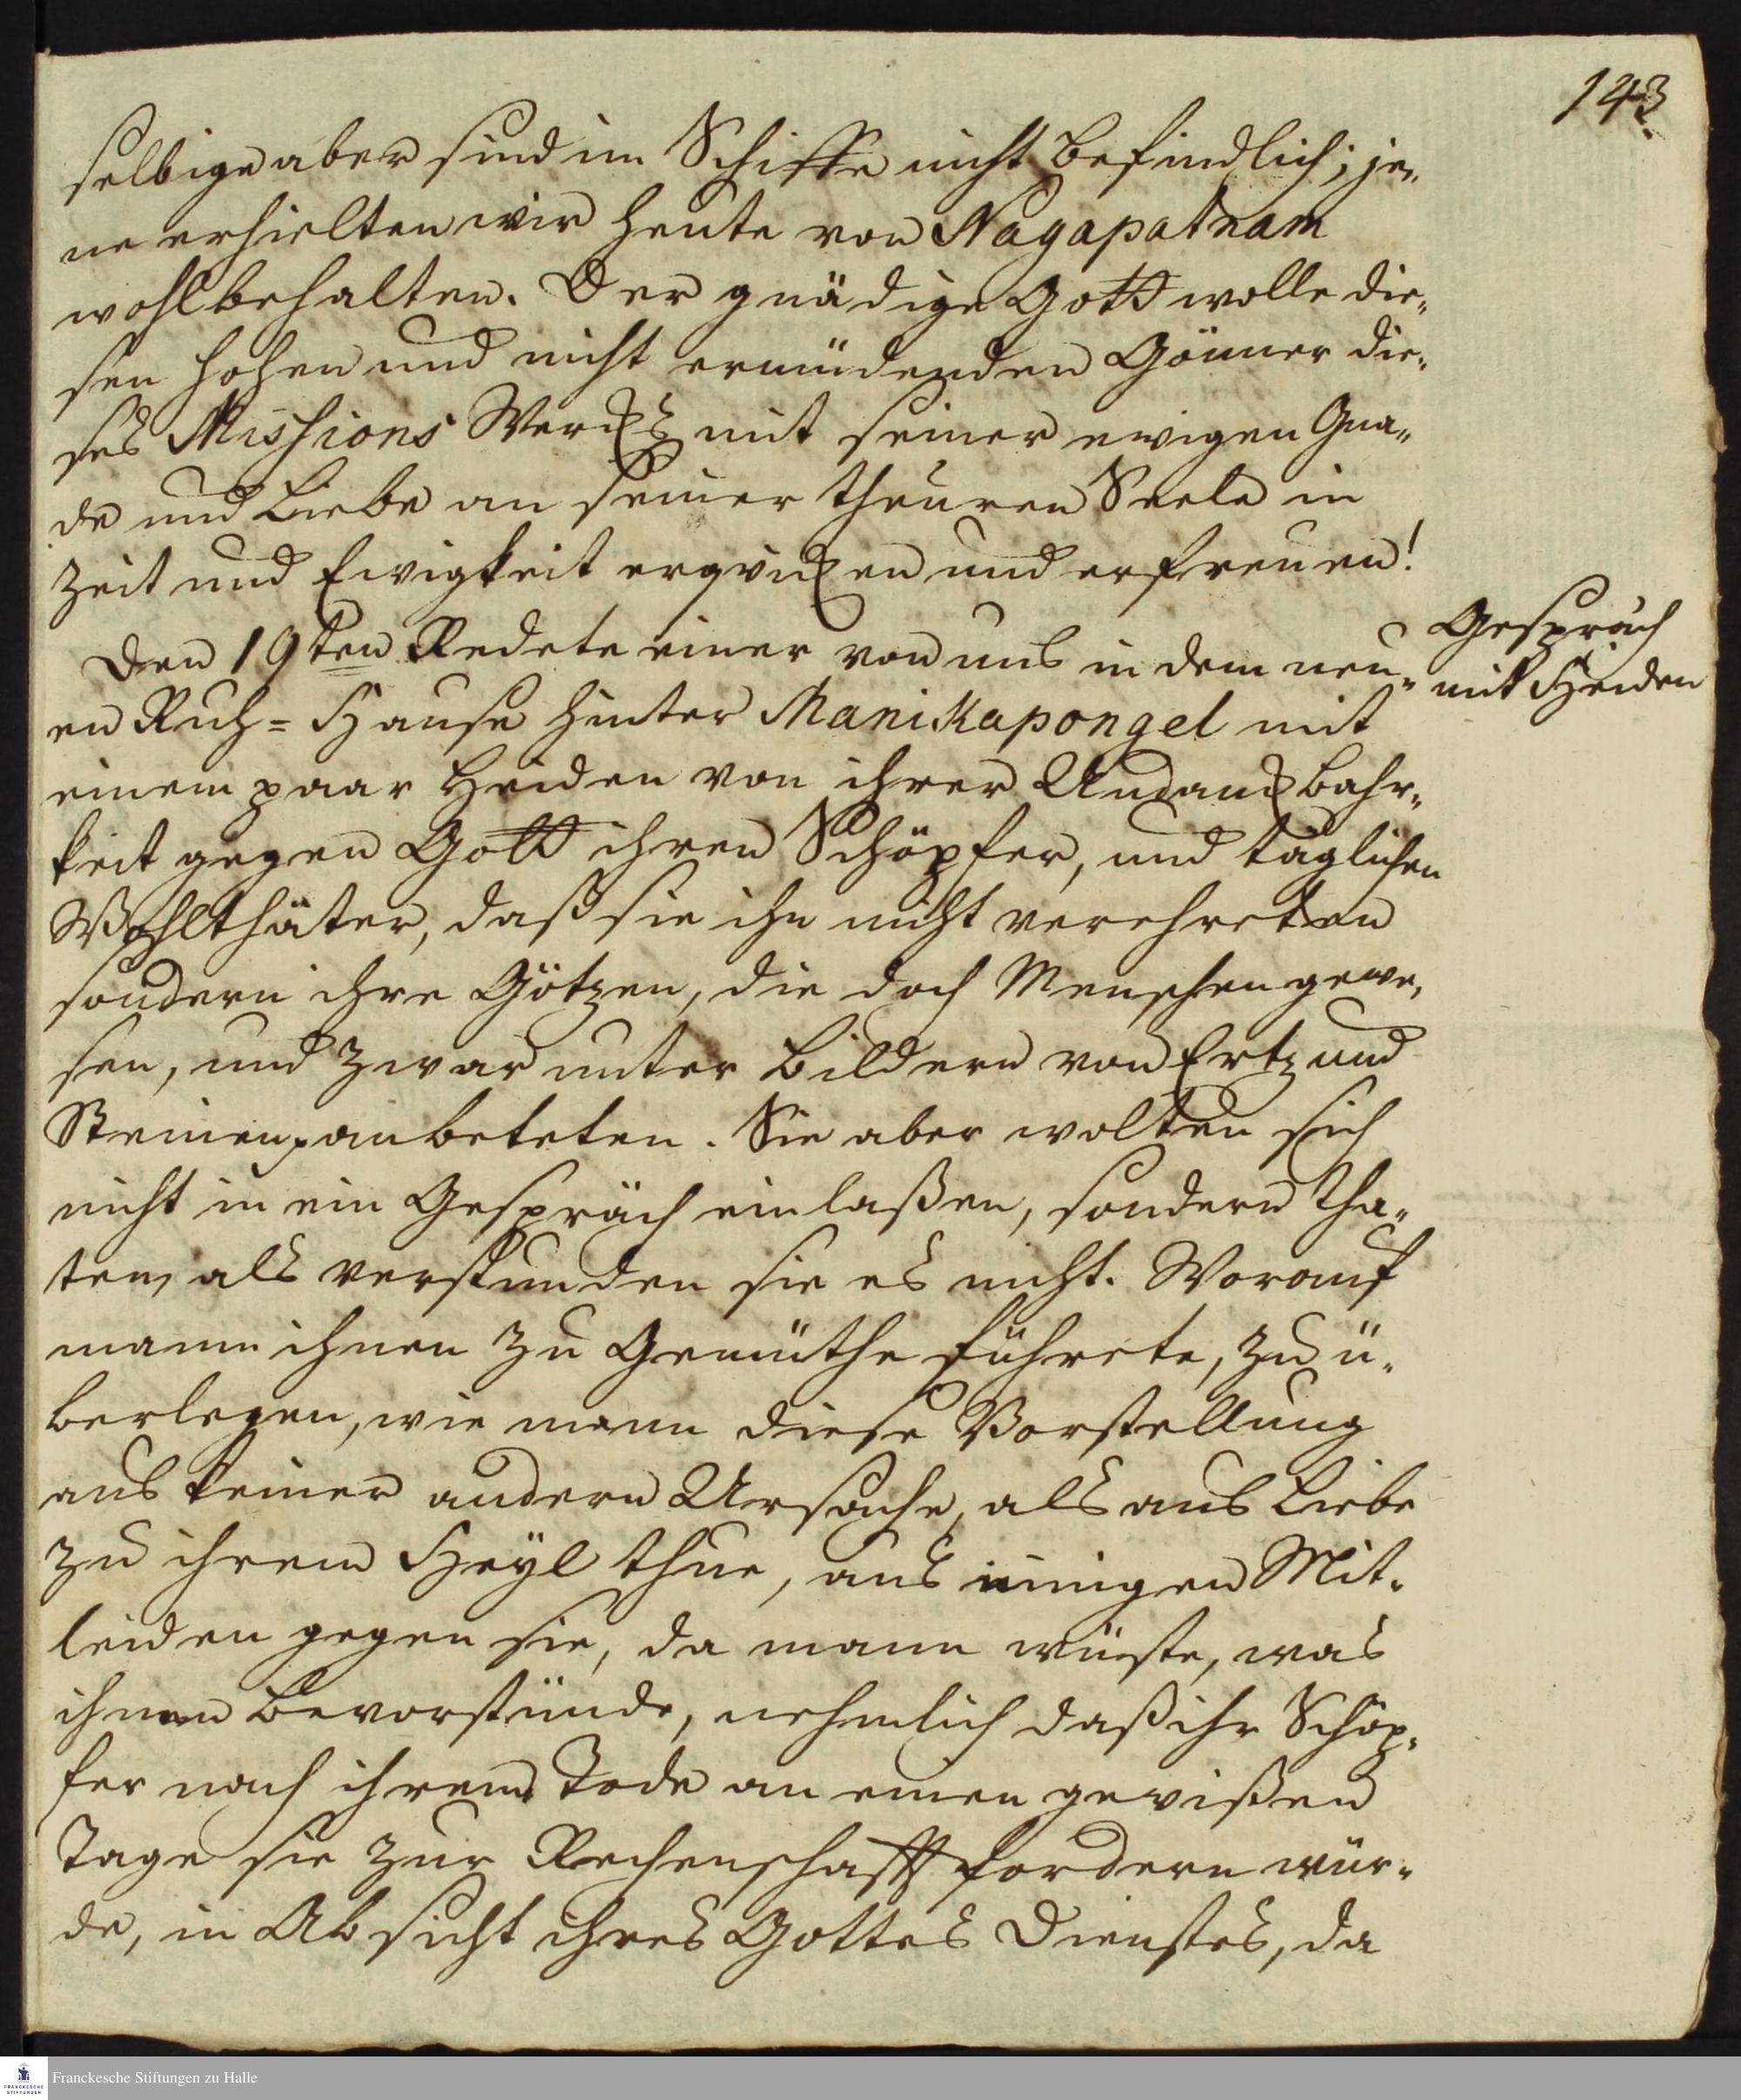 143
selbige aber sind im Schiffe nicht befindlich; je„
ne erhielten wir heute von Nagapatnam
wohlbehalten. Der gnädige Gott wolle die„
sen hohen und nicht ermüdenden Gönner die„
ses Missions Wercks mit seiner ewigen Gna„
de und Liebe an seiner theuren Seele in
Zeit und Ewigkeit erqvicken und erfreuen!
Den 19ten Redete einer von uns in dem neu„
en Ruh= Hause hinter Manikapongel mit
einem paar Heiden von ihrer Undanckbahr„
keit gegen Gott ihren Schöpfer, und täglichen
Wohlthäter, daß sie ihn nicht verehreten
sondern ihre Götzen, die doch Menschen gewe„
sen, und zwar unter Bildern von Ertz und
Steinen anbeteten. Sie aber wolten sich
nicht in ein Gespräch einlaßen, sondern tha„
ten, als verstunden sie es nicht. Worauf
mann ihnen zu Gemüthe führete, zu ü„
berlegen, wie mann diese Vorstellung
aus keiner andern Ursache, als aus Liebe
zu ihrem Heÿl thue, aus innigen Mit„
leiden gegen sie, da mann wüste, was
ihnen bevorstünde, nehmlich daß ihr Schöp„
fer nach ihrem Tode an einen gewißen
Tage sie zur Rechenschafft fordern wür„
de, in Absicht ihres Gottes Dienstes, da
Gespräch
mit Heiden
Franckesche Stiftungen zu Halle
FRANCKESCHE
STIFTUNGEN